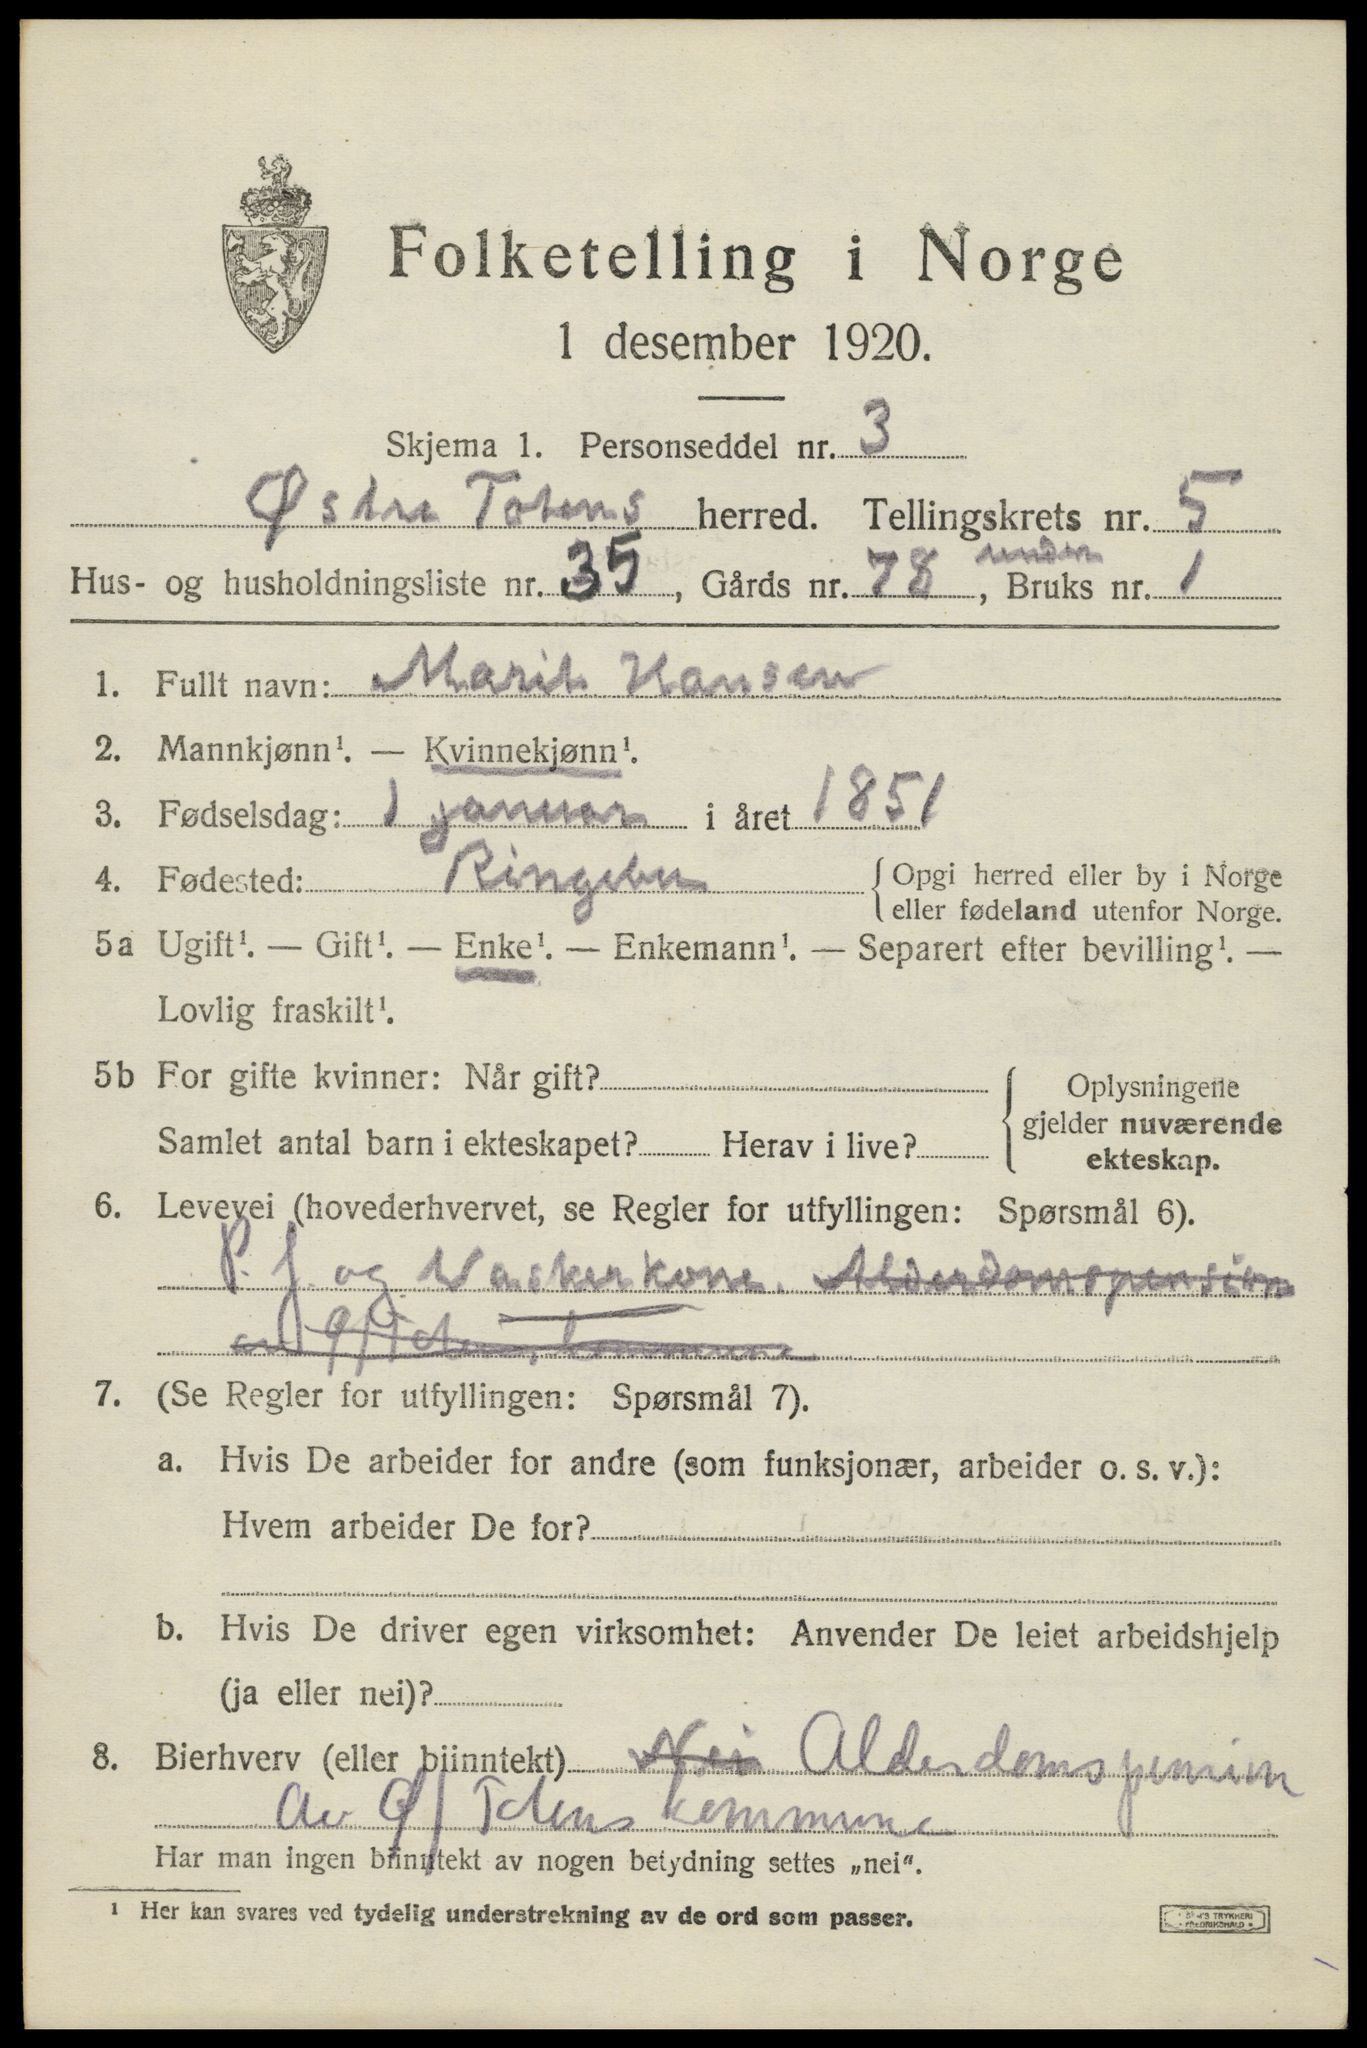 Folketelling i Norge
1 desember 1920.
Skjema 1. Personseddel nr. 3
Østre Totens herred. Tellingskrets nr. 5
under
Hus- og husholdningsliste nr. 35, Gårds nr. 78, Bruks nr. 1
1. Fullt navn: Marit Hansen
2. Mannkjønn¹. — Kvinnekjønn¹.
3. Fødselsdag: 1 januar i året 1851
4. Fødested: Ringebu {Opgi herred eller by i Norge
eller fødeland utenfor Norge.
5a Ugift¹. — Gift¹. — Enke¹. — Enkemann¹. — Separert efter bevilling¹. —
Lovlig fraskilt¹.
5b For gifte kvinner: Når gift?
Samlet antal barn i ekteskapet? Herav i live?
{Oplysningene
gjelder nuværende
ekteskap.
6. Levevei (hovederhvervet, se Regler for utfyllingen: Spørsmål 6).
P. f. og Vaskerkone. Alderdomspension
av Ø/Totens kommune
7. (Se Regler for utfyllingen: Spørsmål 7).
a. Hvis De arbeider for andre (som funksjonær, arbeider o. s. v.):
Hvem arbeider De for?
b. Hvis De driver egen virksomhet: Anvender De leiet arbeidshjelp
(ja eller nei)?
8. Bierhverv (eller biinntekt) Nei Alderdomspension
Av Ø/Totens kommune
Har man ingen biinntekt av nogen betydning settes „nei“.
¹ Her kan svares ved tydelig understrekning av de ord som passer.
TRYKKERI
FREDRIKSHALD